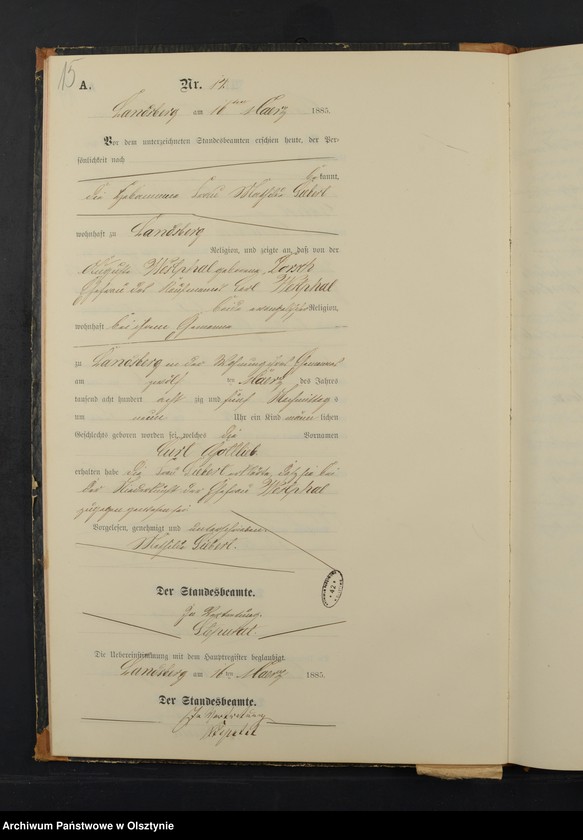 15
A. Nr. 12.
Landsberg am 16ten Maerz 1885.
Vor dem unterzeichneten Standesbeamten erschien heute, der Per-
sönlichkeit nach
be kannt,
die Hebamme Frau Mathilde
wohnhaft zu Landsberg
Religion, und zeigte an, daß von der
Auguste Westphal geborene
Ehefrau des Kaufmanns Carl Westphal
beide evangelischer Religion,
wohnhaft bei ihrem Ehemanne
zu Landsberg in der Wohnung ihres Ehemannes
am zwölf ten Maerz des Jahres
tausend acht hundert acht zig und fünf Nachmittags
um neun Uhr ein Kind männ lichen
Geschlechts geboren worden sei, welches die Vornamen
Curt Gottlieb
erhalten habe die Frau erklärte, daß sie bei
der Niederkunft der Ehefrau Westphal
zugegen gewesen sei
Vorgelesen, genehmigt und unterschrieben
Mathilde
Der Standesbeamte.
In Vertretung.
Die Uebereinstimmung mit dem Hauptregister beglaubigt.
Landsberg am 16ten Maerz 1885.
Der Standesbeamte.
In Vertretung
Archiwum Państwowe w Olsztynie